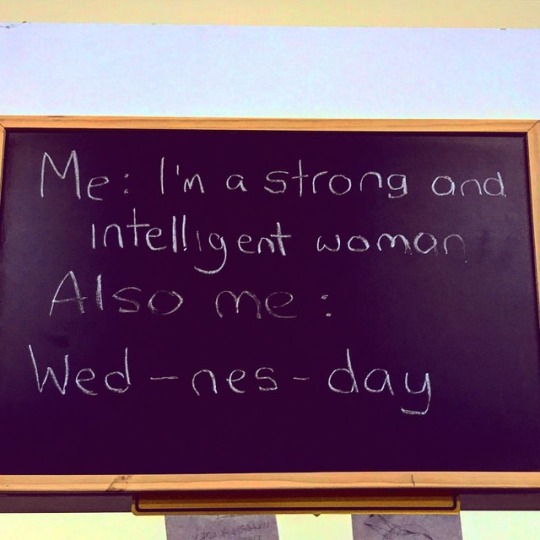 Me: I'm a strong and
intelligent woman
Also me:
Wed-nes-day